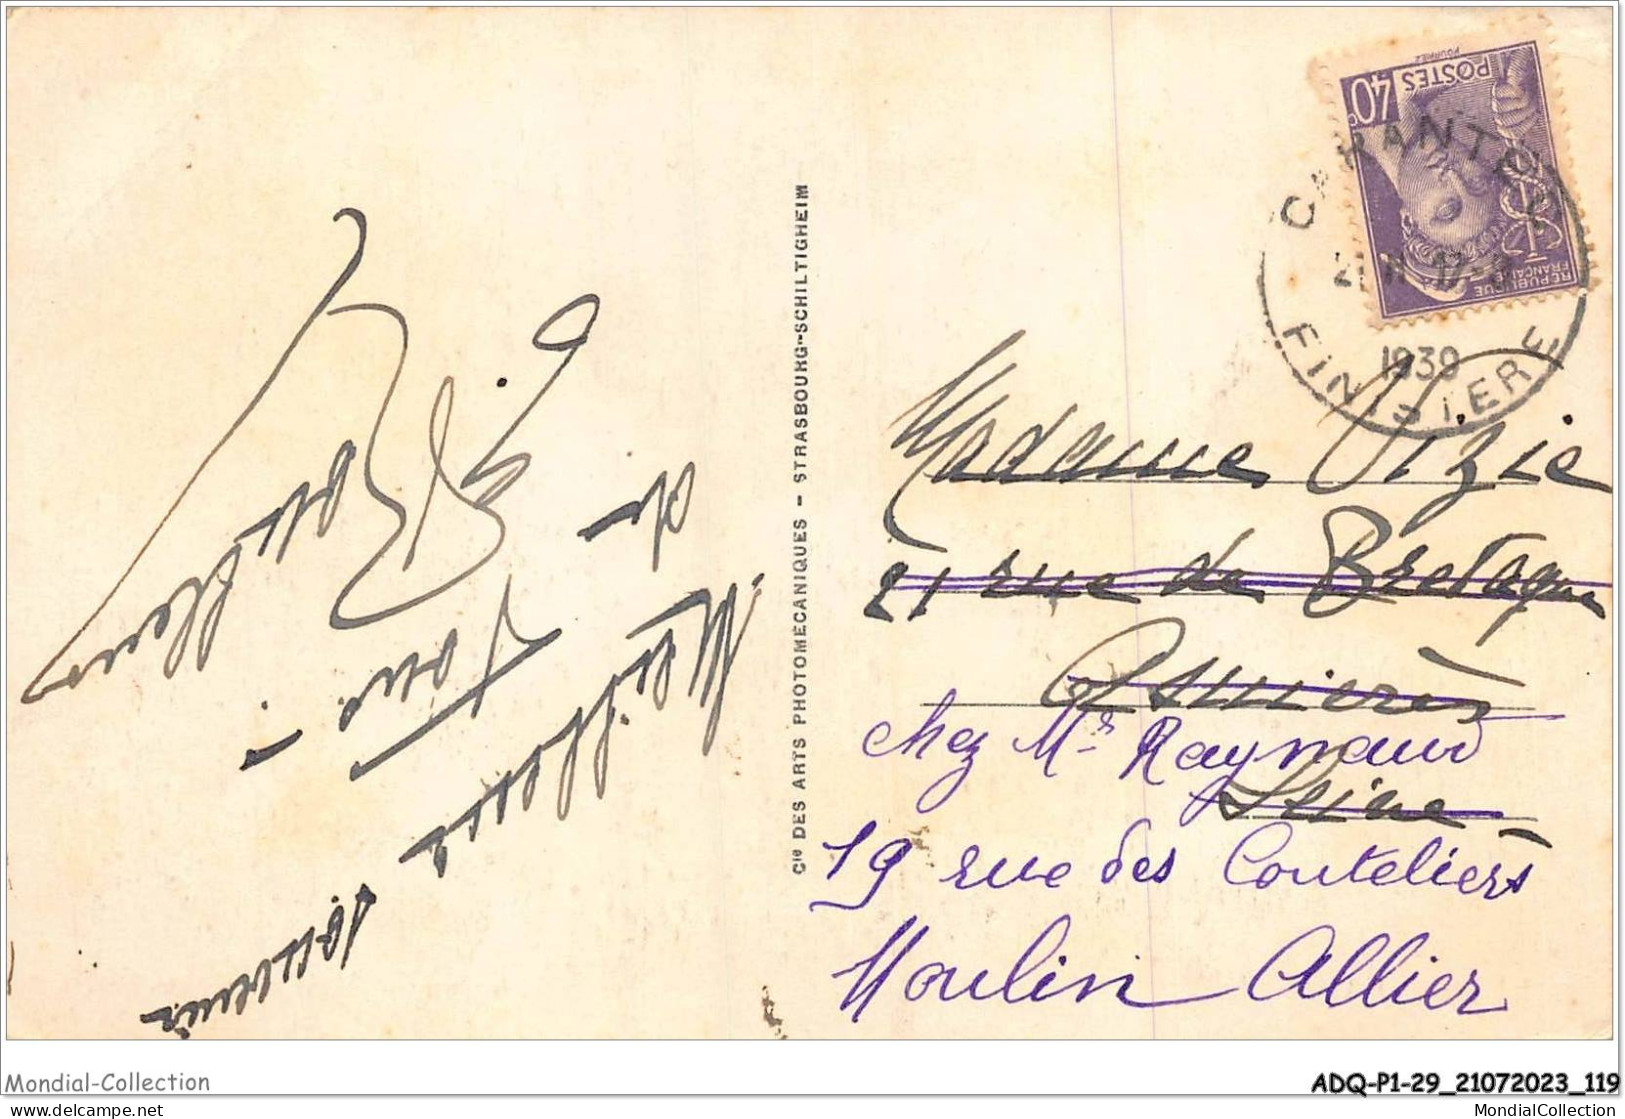 40c
POSTES
POURRIEZ
REPUBLIQUE
FRANÇAISE
CARANTEC
1939
FINISTERE
Meilleurs
souvenir
de
tous
Cie DES ARTS PHOTOMÉCANIQUES - STRASBOURG-SCHILTIGHEIM
Madame Vizie
21 rue de Bretagne
Asnières
chez Mr Raynaud
Seine
19 rue des Couteliers
Moulin Allier
Mondial-Collection
ADQ-P1-29_21072023_119
https://www.delcampe.net
MondialCollection